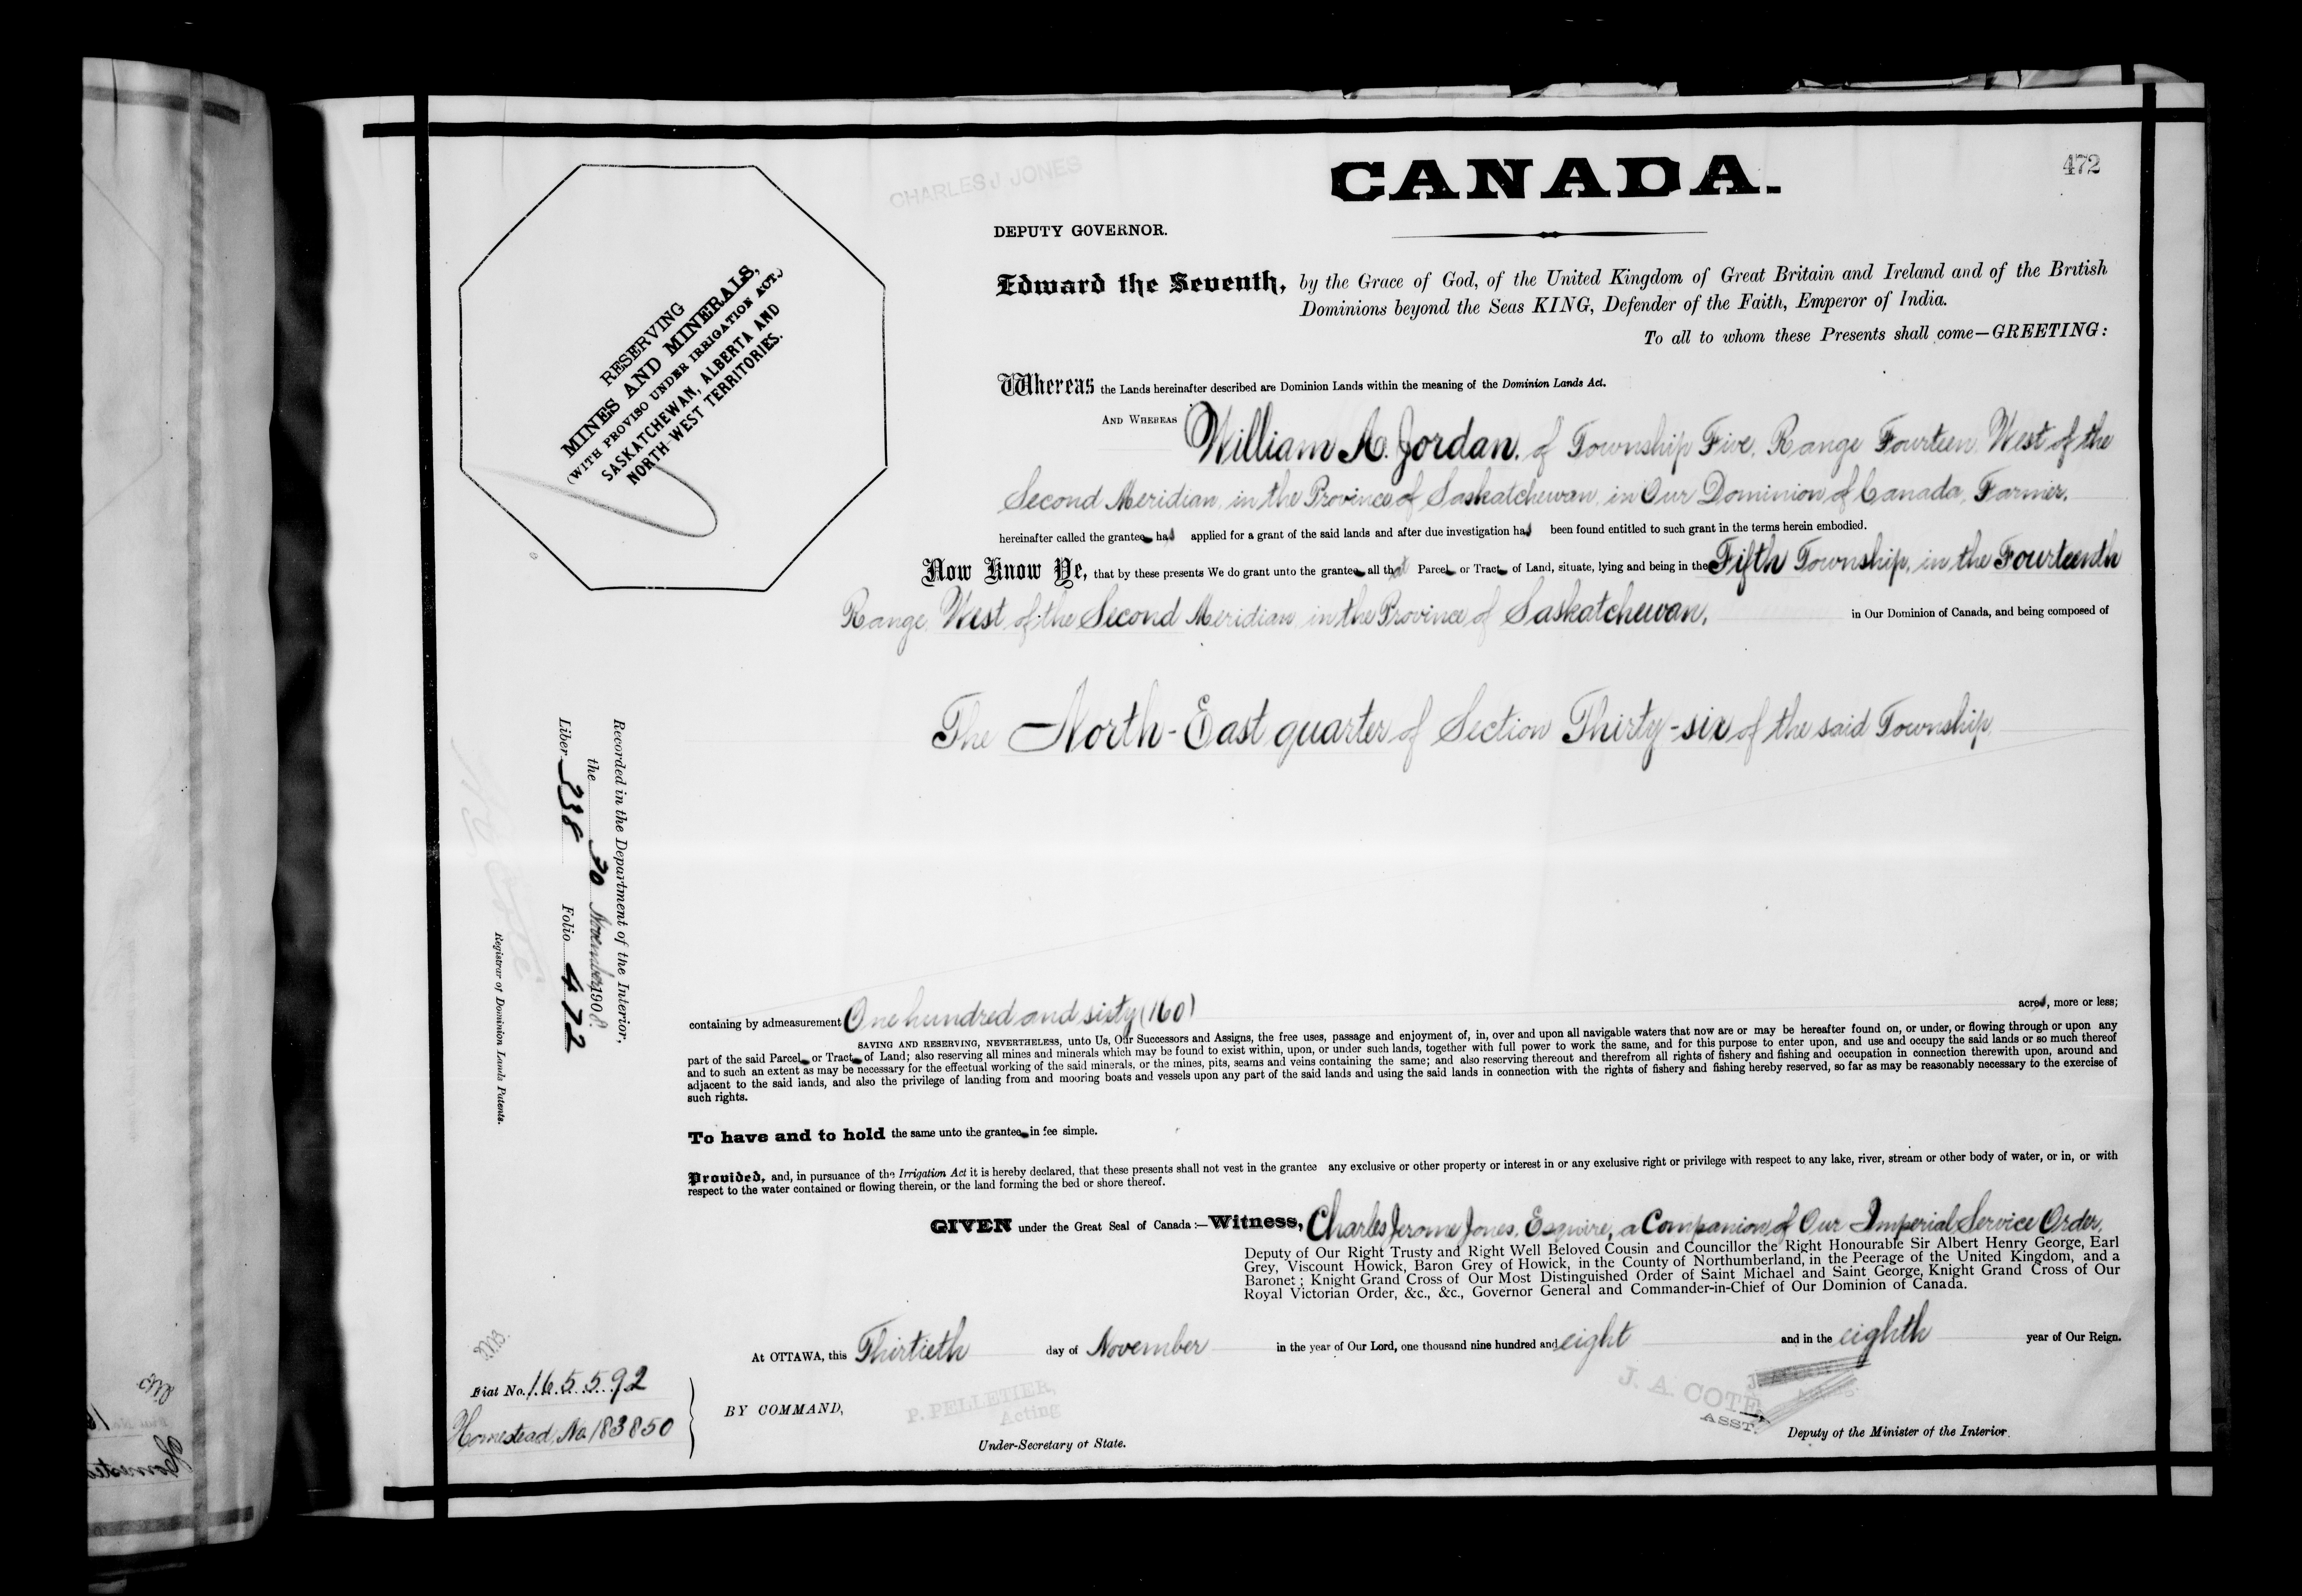 CANADA.
472
CHARLES J JONES
DEPUTY GOVERNOR.
RESERVING
MINES AND MINERALS,
(WITH PROVISO UNDER IRRIGATION ACT.)
SASKATCHEWAN, ALBERTA AND
NORTH-WEST TERRITORIES.
Edward the Seventh, by the Grace of God, of the United Kingdom of Great Britain and Ireland and of the British
Dominions beyond the Seas KING, Defender of the Faith, Emperor of India.
To all to whom these Presents shall come—GREETING:
Whereas the Lands hereinafter described are Dominion Lands within the meaning of the Dominion Lands Act.
AND WHEREAS William A. Jordan, of Township Five, Range Fourteen, West of the
Second Meridian, in the Province of Saskatchewan, in Our Dominion of Canada, Farmer,
hereinafter called the grantee has applied for a grant of the said lands and after due investigation has been found entitled to such grant in the terms herein embodied.
Now Know Ye, that by these presents We do grant unto the grantee all that Parcel or Tract of Land, situate, lying and being in the Fifth Township, in the Fourteenth
Range, West of the Second Meridian in the Province of Saskatchewan, in Our Dominion of Canada, and being composed of
The North-East quarter of Section Thirty-six of the said Township
Recorded in the Department of the Interior,
the 30 November 1908
Liber 238 Folio 472
Registrar of Dominion Lands Patents.
containing by admeasurement One hundred and sixty (160) acres, more or less;
SAVING AND RESERVING, NEVERTHELESS, unto Us, Our Successors and Assigns, the free uses, passage and enjoyment of, in, over and upon all navigable waters that now are or may be hereafter found on, or under, or flowing through or upon any
part of the said Parcel or Tract of Land; also reserving all mines and minerals which may be found to exist within, upon, or under such lands, together with full power to work the same, and for this purpose to enter upon, and use and occupy the said lands or so much thereof
and to such an extent as may be necessary for the effectual working of the said minerals, or the mines, pits, seams and veins containing the same; and also reserving thereout and therefrom all rights of fishery and fishing and occupation in connection therewith upon, around and
adjacent to the said lands, and also the privilege of landing from and mooring boats and vessels upon any part of the said lands and using the said lands in connection with the rights of fishery and fishing hereby reserved, so far as may be reasonably necessary to the exercise of
such rights.
To have and to hold the same unto the grantee in fee simple.
Provided, and, in pursuance of the Irrigation Act it is hereby declared, that these presents shall not vest in the grantee any exclusive or other property or interest in or any exclusive right or privilege with respect to any lake, river, stream or other body of water, or in, or with
respect to the water contained or flowing therein, or the land forming the bed or shore thereof.
GIVEN under the Great Seal of Canada:—Witness, Charles Jerome Jones, Esquire, a Companion of Our Imperial Service Order,
Deputy of Our Right Trusty and Right Well Beloved Cousin and Councillor the Right Honourable Sir Albert Henry George, Earl
Grey, Viscount Howick, Baron Grey of Howick, in the County of Northumberland, in the Peerage of the United Kingdom, and a
Baronet; Knight Grand Cross of Our Most Distinguished Order of Saint Michael and Saint George, Knight Grand Cross of Our
Royal Victorian Order, &c., &c., Governor General and Commander-in-Chief of Our Dominion of Canada.
At OTTAWA, this Thirtieth day of November in the year of Our Lord, one thousand nine hundred and eight and in the eighth year of Our Reign.
Fiat No. 165592
Homestead, No. 183850
BY COMMAND,
P. PELLETIER,
Acting
Under-Secretary of State.
J. A. COTÉ
ASST.
Deputy of the Minister of the Interior.